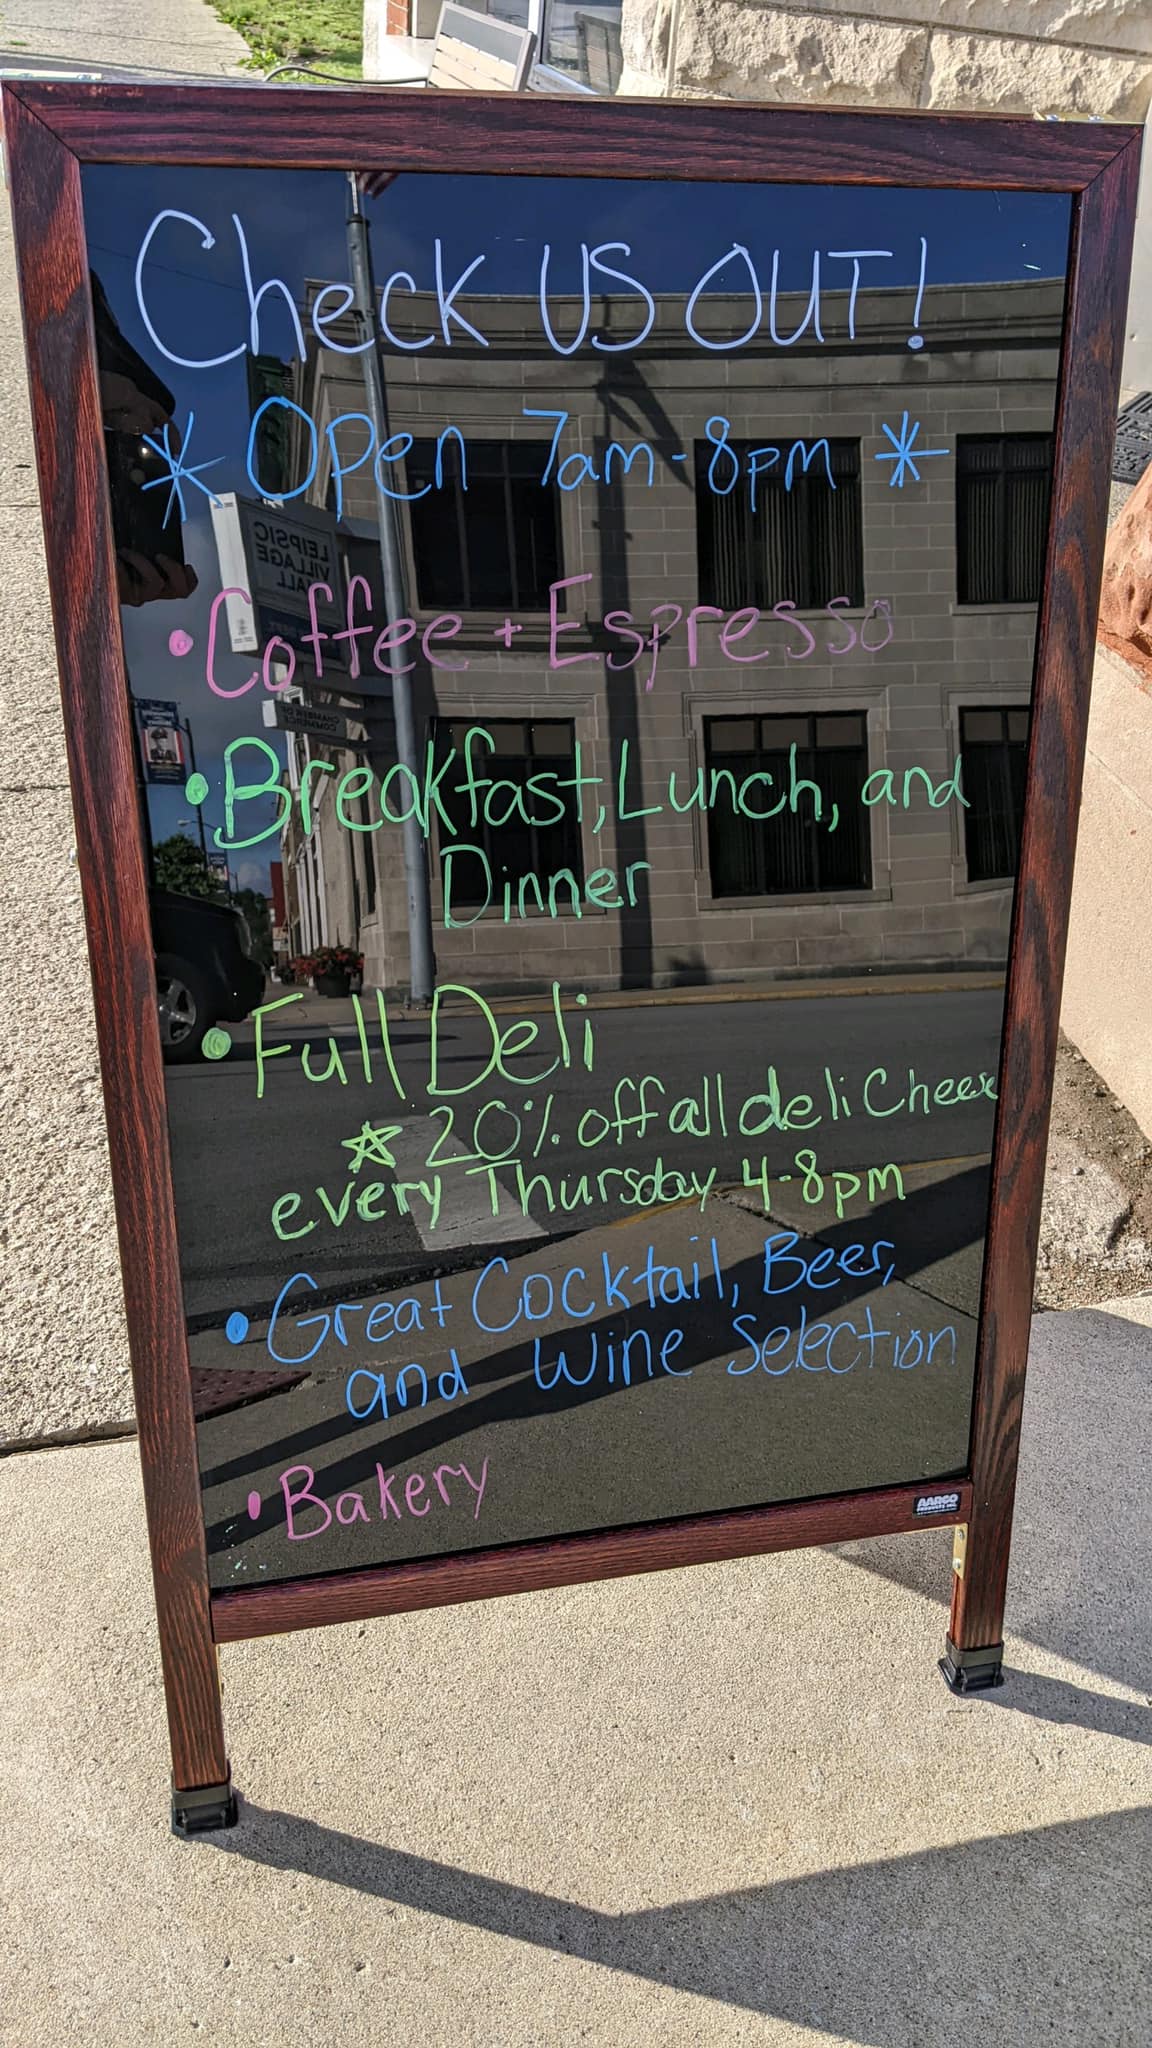 Check US OUT!
* Open 7am-8pm *
• Coffee + Espresso
• Breakfast, Lunch, and
Dinner
• Full Deli
☆ 20% off all deli Cheese
every Thursday 4-8pm
• Great Cocktail, Beer,
and Wine Selection
• Bakery
AARCO
PRODUCTS INC.
LEIPSIC
VILLAGE
HALL
CHAMBER OF
COMMERCE